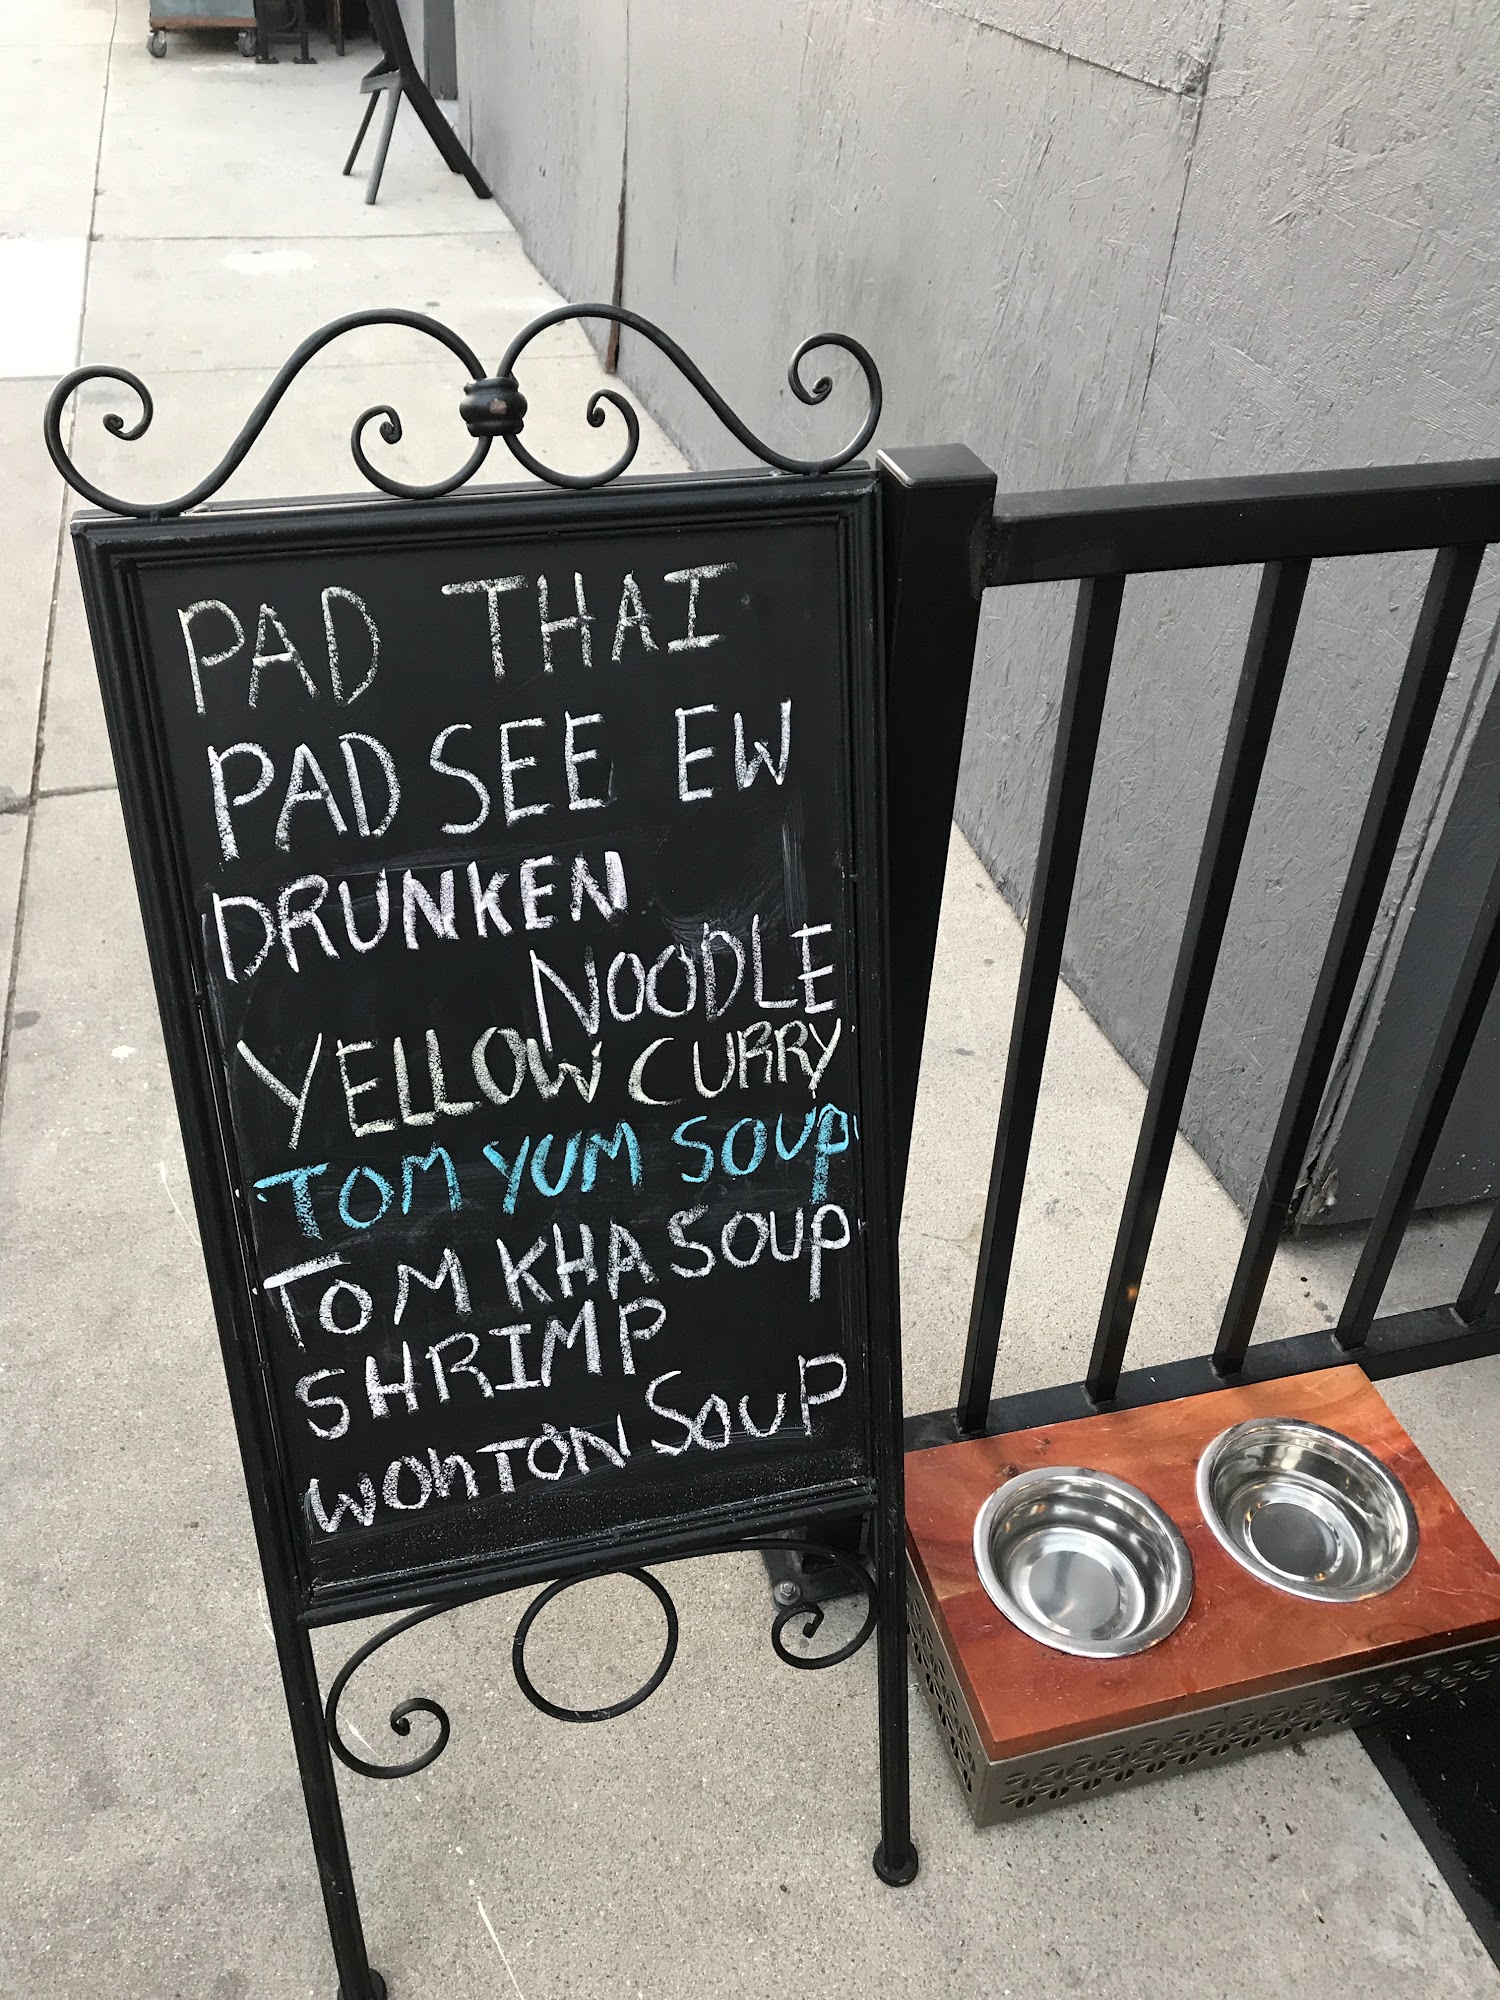 PAD THAI
PAD SEE EW
DRUNKEN
NOODLE
YELLOW CURRY
TOM YUM SOUP
TOM KHA SOUP
SHRIMP
WOhTON SOUP